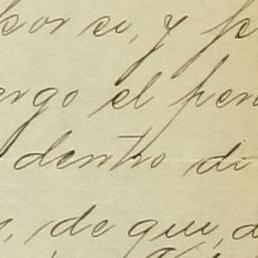 por si, y p
ergo el pen
dentro di
s, de que, d